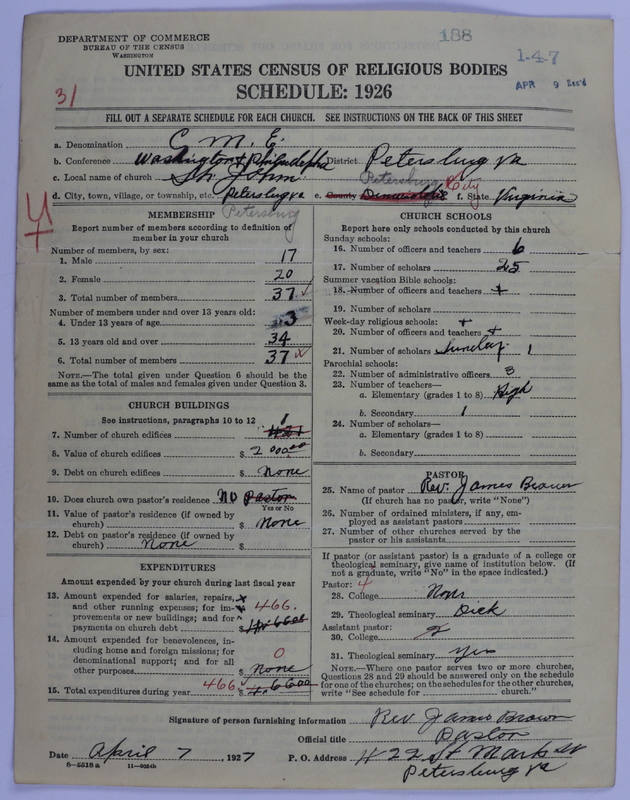 DEPARTMENT OF COMMERCE
BUREAU OF THE CENSUS
WASHINGTON
188
1-4-7
APR 9
UNITED STATES CENSUS OF RELIGIOUS BODIES
31
SCHEDULE: 1926
FILL OUT A SEPARATE SCHEDULE FOR EACH CHURCH. SEE INSTRUCTIONS ON THE BACK OF THIS SHEET
a. Denomination C. M. E.
b. Conference Washington & Philadelpha District Petersburg va
c. Local name of church St. John Petersburg
d. City, town, village, or township, etc. Petersburg va e. County Dinwiddie City f. State Virginia
Petersburg
MEMBERSHIP
Report number of members according to definition of
member in your church
Number of members, by sex:
1. Male 17
2. Female 20
3. Total number of members 37
Number of members under and over 13 years old:
4. Under 13 years of age 3
5. 13 years old and over 34
6. Total number of members 37
NOTE.—The total given under Question 6 should be the
same as the total of males and females given under Question 3.
CHURCH BUILDINGS
See instructions, paragraphs 10 to 12 1
7. Number of church edifices
8. Value of church edifices $ 2000.00
9. Debt on church edifices $ None
10. Does church own pastor's residence No Pastor
Yes or No
11. Value of pastor's residence (if owned by
church) $ None
12. Debt on pastor's residence (if owned by
church) None $
EXPENDITURES
Amount expended by your church during last fiscal year
13. Amount expended for salaries, repairs,
and other running expenses; for im- 466.
provements or new buildings; and for
payments on church debt $
14. Amount expended for benevolences, in-
cluding home and foreign missions; for
denominational support; and for all 0
other purposes $ None
15. Total expenditures during year 466. $
CHURCH SCHOOLS
Report here only schools conducted by this church
Sunday schools:
16. Number of officers and teachers 6
17. Number of scholars 25
Summer vacation Bible schools:
18. Number of officers and teachers +
19. Number of scholars
Week-day religious schools: +
20. Number of officers and teachers +
21. Number of scholars Sunday 1
Parochial schools:
22. Number of administrative officers 3
23. Number of teachers—
a. Elementary (grades 1 to 8) High
b. Secondary 1
24. Number of scholars—
a. Elementary (grades 1 to 8)
b. Secondary
PASTOR
25. Name of pastor Rev. James Brown
(If church has no pastor, write "None")
26. Number of ordained ministers, if any, em-
ployed as assistant pastors
27. Number of other churches served by the
pastor or his assistants
If pastor (or assistant pastor) is a graduate of a college or
theological seminary, give name of institution below. (If
not a graduate, write "No" in the space indicated.)
Pastor: 4
28. College None
29. Theological seminary Dick
Assistant pastor:
30. College
31. Theological seminary Yes
NOTE.—Where one pastor serves two or more churches,
Questions 28 and 29 should be answered only on the schedule
for one of the churches; on the schedules for the other churches,
write "See schedule for church."
Signature of person furnishing information Rev. James Brown
Official title Pastor
Date April 7, 1927 P. O. Address 422 St Mark St
8-5518 a 11-9024b Petersburg va